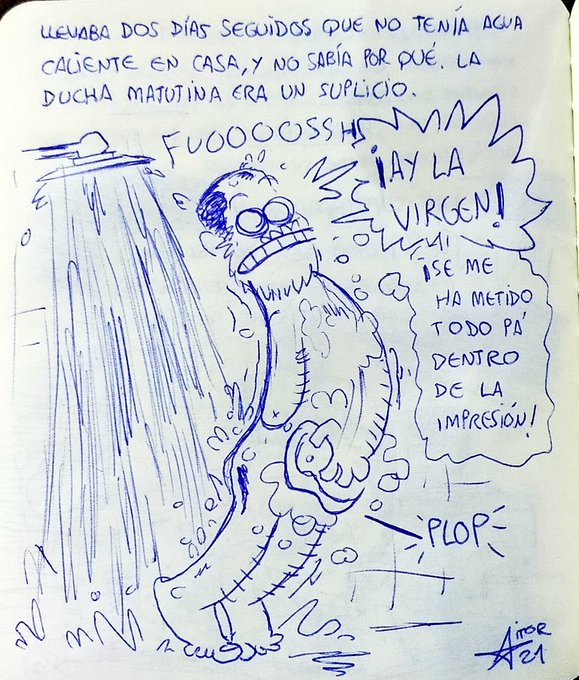 LLEVABA DOS DÍAS SEGUIDOS QUE NO TENÍA AGUA
CALIENTE EN CASA, Y NO SABÍA POR QUÉ. LA
DUCHA MATUTINA ERA UN SUPLICIO.
FUOOOOSSH
¡AY LA
VIRGEN!
¡SE ME
HA METIDO
TODO PÁ
DENTRO
DE LA
IMPRESIÓN!
PLOP
AITOR
21